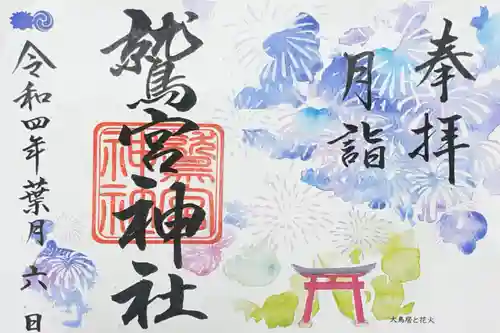 奉拝
月詣
鷲宮神社
鷲宮神社
令和四年葉月六日
大鳥居と花火